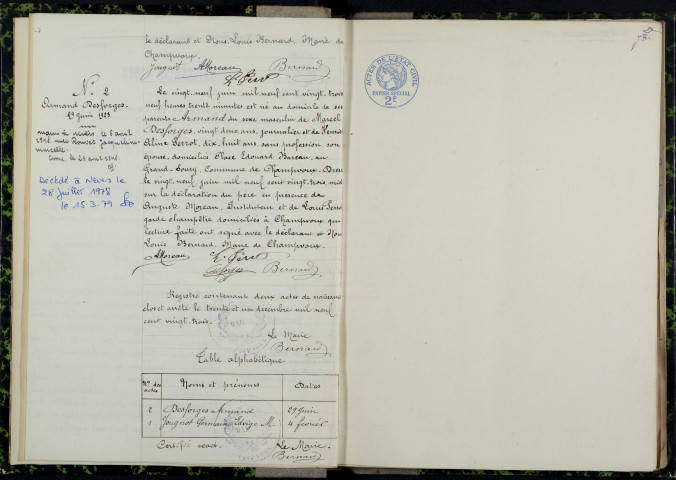 le déclarant et Nous, Louis Bernard, Maire de
Champvoux.
Jougnot AMoreau Bernard
N° 2
Armand Desforges.
29 Juin 1923
le 6 avril
Décédé à Nevers le
28 Juillet 1978
le 15.3.79
Le vingt neuf juin mil neuf cent vingt trois
neuf heures trente minutes est né au domicile de ses
parents Armand du sexe masculin de Marcel
Desforges, vingt deux ans, journalier et de
Aline Perrot, dix-huit ans, sans profession, son
épouse, domiciliés Place Edouard Bareau, au
Grand-Soury, Commune de Champvoux. Dressé
le vingt neuf juin mil neuf cent vingt trois, midi
sur la déclaration du père en présence de
Auguste Moreau, Instituteur et de Louis
garde champêtre domiciliés à Champvoux qui
lecture faite ont signé avec le déclarant et Nous
Louis Bernard, Maire de Champvoux.
AMoreau
Desforges Bernard
Registre contenant deux actes de naissance
clos et arrêté le trente et un décembre mil neuf
cent vingt-trois.
Le Maire
Bernard
Table alphabétique
Nos des actes Noms et prénoms Dates
2 Desforges Armand 29 Juin
1 Jougnot Germaine Edwige M. 4 février
Certifié exact. Le Maire
Bernard
ACTES DE L'ÉTAT CIVIL
PAPIER SPÉCIAL
2F